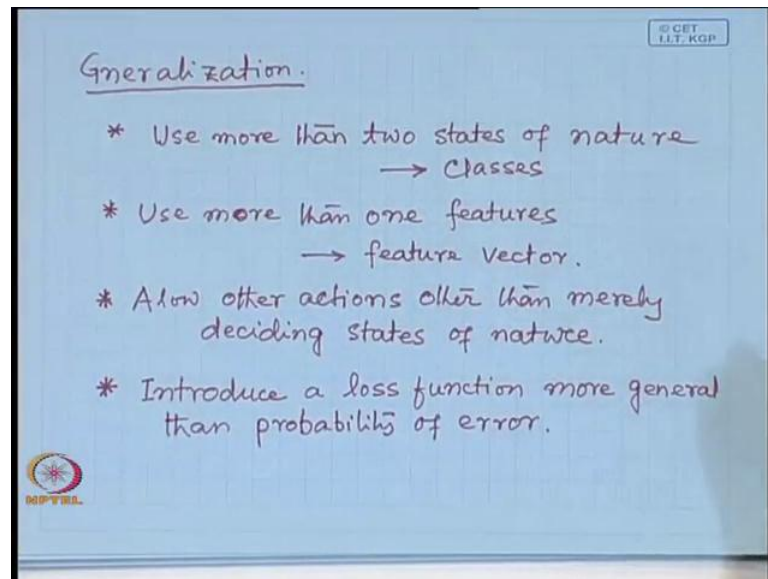 © CET
I.I.T. KGP
Gneralization.
* Use more than two states of nature
→ Classes
* Use more than one features
→ feature vector.
* Alow other actions other than merely
deciding states of nature.
* Introduce a loss function more general
than probability of error.
NPTEL